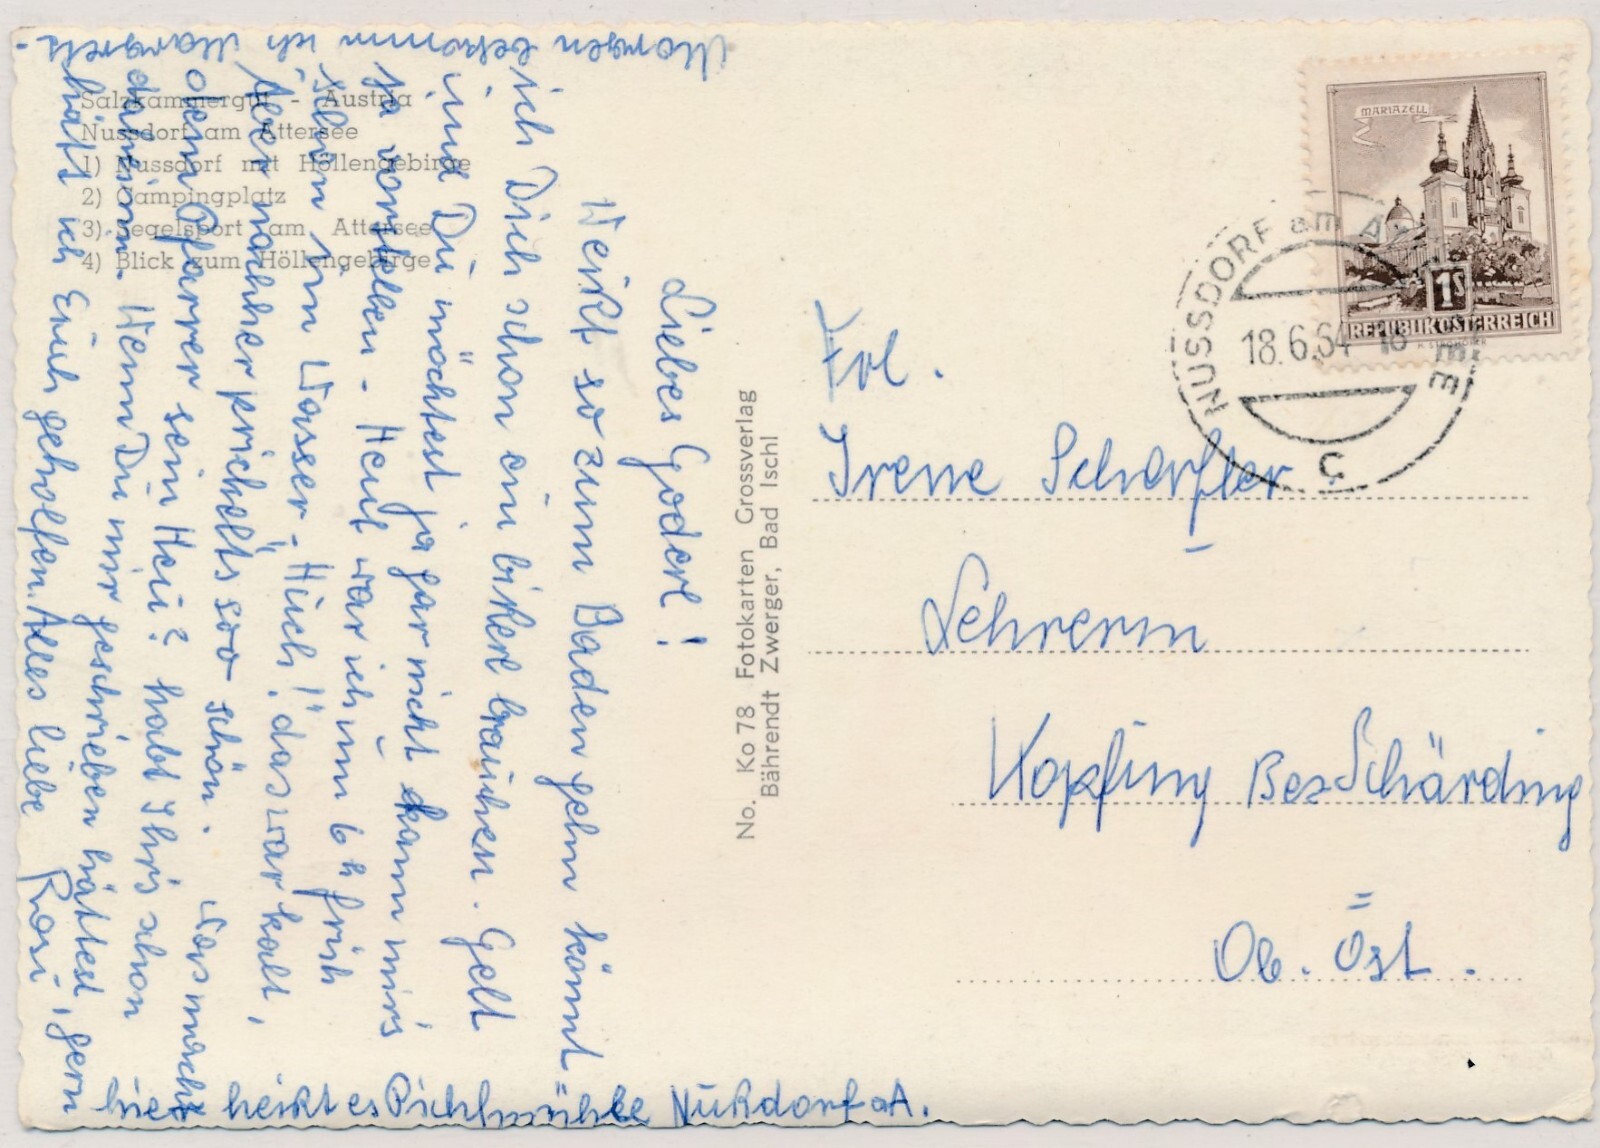 Salzkammergut - Austria
Nussdorf am Attersee
1) Nussdorf mit Höllengebirge
2) Campingplatz
3) Segelsport am Attersee
4) Blick zum Höllengebirge
Liebes Goderl!
Weißt so zum Baden gehn könnt
ich Dich schon ein bißerl brauchen. Gelt
und Du möchtest ja gar nicht kann mir's
ja vorstellen - Heut war ich um 6h früh
schon im Wasser - Huch! das war kalt,
Aber nachher prickelt's soo schön. Was macht
denn Pfarrer sein Heu? habt Ihr's schon
daheim. Wenn Du mir geschrieben hättest, gern
hätt ich Euch geholfen. Alles liebe Rosi
Morgen bekomm ich Margreth.
hier heißt es Pichlmühle Nußdorf a A.
No. Ko 78 Fotokarten Grossverlag
Bährendt Zwerger, Bad Ischl
MARIAZELL
1S
REPUBLIK ÖSTERREICH
NUSSDORF am A
18.6.64 - 18
Frl.
Irene Scharfler
Lehrerin
Kopfing Bez Schärding
Ob. Öst.